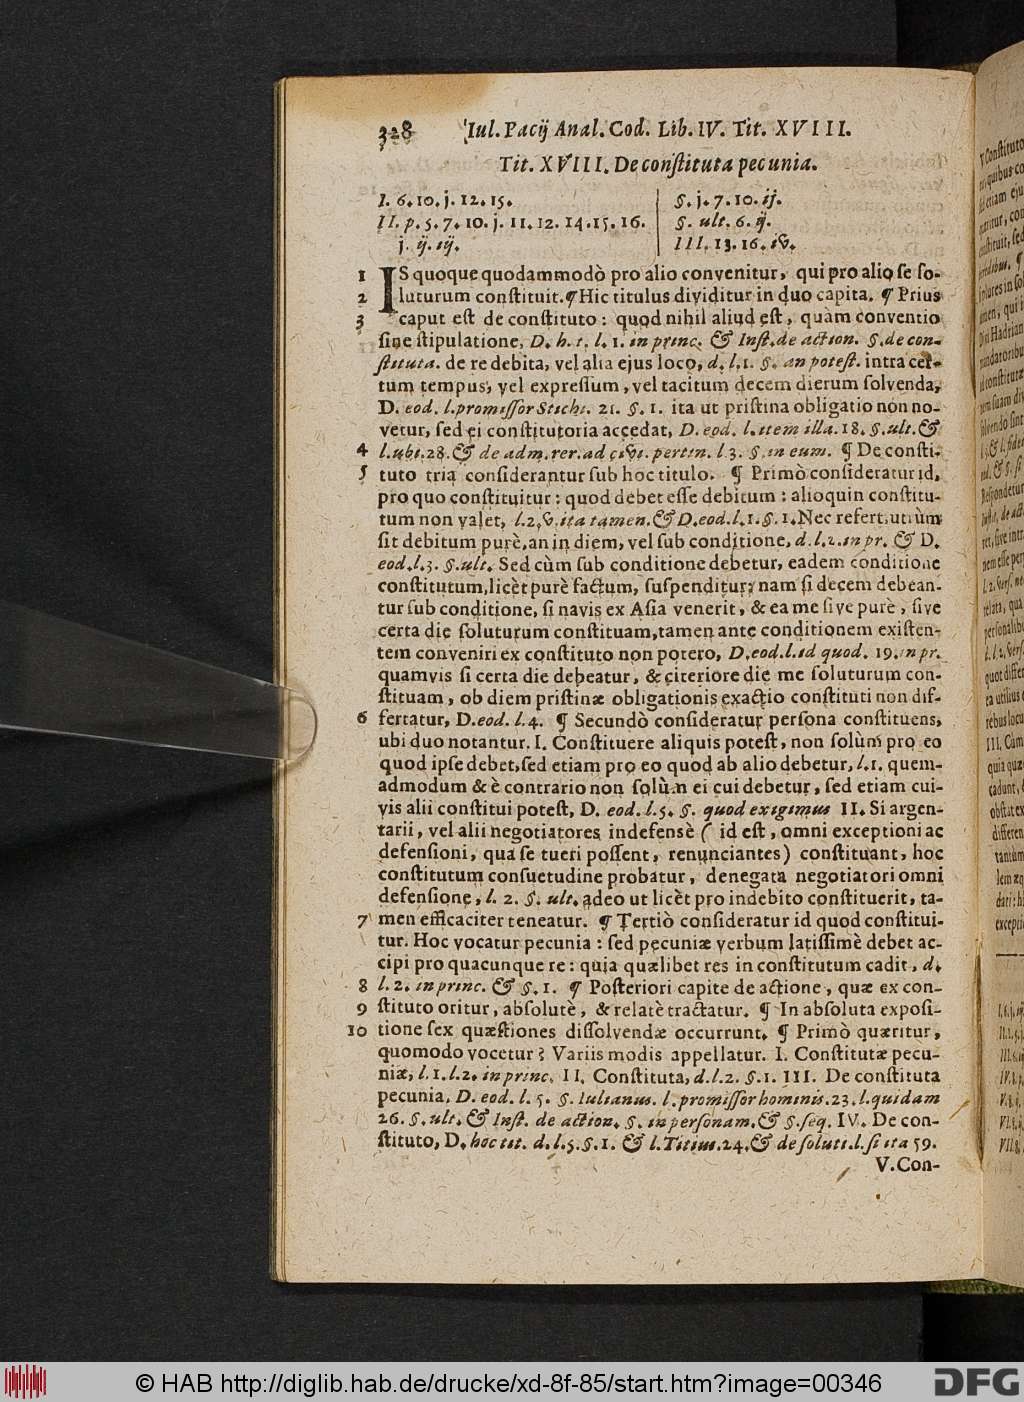 328 Iul. Pacij Anal. Cod. Lib. IV. Tit. XVIII.
Tit. XVIII. De constituta pecunia.
I. 6. 10. j. 12. 15.
II. p. 5. 7. 10. j. 11. 12. 14. 15. 16.
j. ij. iij.
§. j. 7. 10. ij.
§. ult. 6. ij.
III. 13. 16. iv.
1 IS quoque quodammodò pro alio convenitur, qui pro alio se so-
2 luturum constituit. ¶ Hic titulus dividitur in duo capita. ¶ Prius
3 caput est de constituto: quod nihil aliud est, quàm conventio
sine stipulatione, D. h. t. l. 1. in princ. & Inst. de action. §. de con-
stituta. de re debita, vel alia ejus loco, d. l. 1. §. an potest. intra cer-
tum tempus, vel expressum, vel tacitum decem dierum solvenda,
D. eod. l. promissor Stichi. 21. §. 1. ita ut pristina obligatio non no-
vetur, sed ei constitutoria accedat, D. eod. l. item illa. 18. §. ult. &
4 l. ubi. 28. & de adm. rer. ad civi. pertin. l 3. §. in eum. ¶ De consti-
5 tuto tria considerantur sub hoc titulo. ¶ Primò consideratur id,
pro quo constituitur: quod debet esse debitum: alioquin constitu-
tum non valet, l. 2. v. ita tamen. & D. eod. l. 1. §. 1. Nec refert, utrùm
sit debitum purè, an in diem, vel sub conditione, d. l. 2. in pr. & D.
eod. l. 3. §. ult. Sed cùm sub conditione debetur, eadem conditione
constitutum, licèt purè factum, suspenditur; nam si decem debean-
tur sub conditione, si navis ex Asia venerit, & ea me sive purè, sive
certa die soluturum constituam, tamen ante conditionem existen-
tem conveniri ex constituto non potero, D. eod. l. id quod. 19. in pr.
quamvis si certa die debeatur, & citeriore die me soluturum con-
stituam, ob diem pristinæ obligationis exactio constituti non dif-
6 fertatur, D. eod. l. 4. ¶ Secundò consideratur persona constituens,
ubi duo notantur. I. Constituere aliquis potest, non solùm pro eo
quod ipse debet, sed etiam pro eo quod ab alio debetur, l. 1. quem-
admodum & è contrario non solùm ei cui debetur, sed etiam cui-
vis alii constitui potest, D. eod. l. 5. §. quod exigimus II. Si argen-
tarii, vel alii negotiatores indefensè ( id est, omni exceptioni ac
defensioni, qua se tueri possent, renunciantes) constituant, hoc
constitutum consuetudine probatur, denegata negotiatori omni
defensione, l. 2. §. ult. adeo ut licèt pro indebito constituerit, ta-
7 men efficaciter teneatur. ¶ Tertiò consideratur id quod constitui-
tur. Hoc vocatur pecunia: sed pecuniæ verbum latissimè debet ac-
cipi pro quacunque re: quia quælibet res in constitutum cadit, d.
8 l. 2. in princ. & §. 1. ¶ Posteriori capite de actione, quæ ex con-
9 stituto oritur, absolutè, & relatè tractatur. ¶ In absoluta exposi-
10 tione sex quæstiones dissolvendæ occurrunt. ¶ Primò quæritur,
quomodo vocetur? Variis modis appellatur. I. Constitutæ pecu-
niæ, l. 1. l. 2. in princ. II. Constituta, d. l. 2. §. 1. III. De constituta
pecunia, D. eod. l. 5. §. Iulianus. l. promissor hominis. 23. l. quidam
26. §. ult. & Inst. de action. §. in personam. & §. seq. IV. De con-
stituto, D. hoc tit. d. l. 5. §. 1. & l. Titius. 24. & de soluti. l. si ita 59.
V. Con-
© HAB http://diglib.hab.de/drucke/xd-8f-85/start.htm?image=00346
DFG